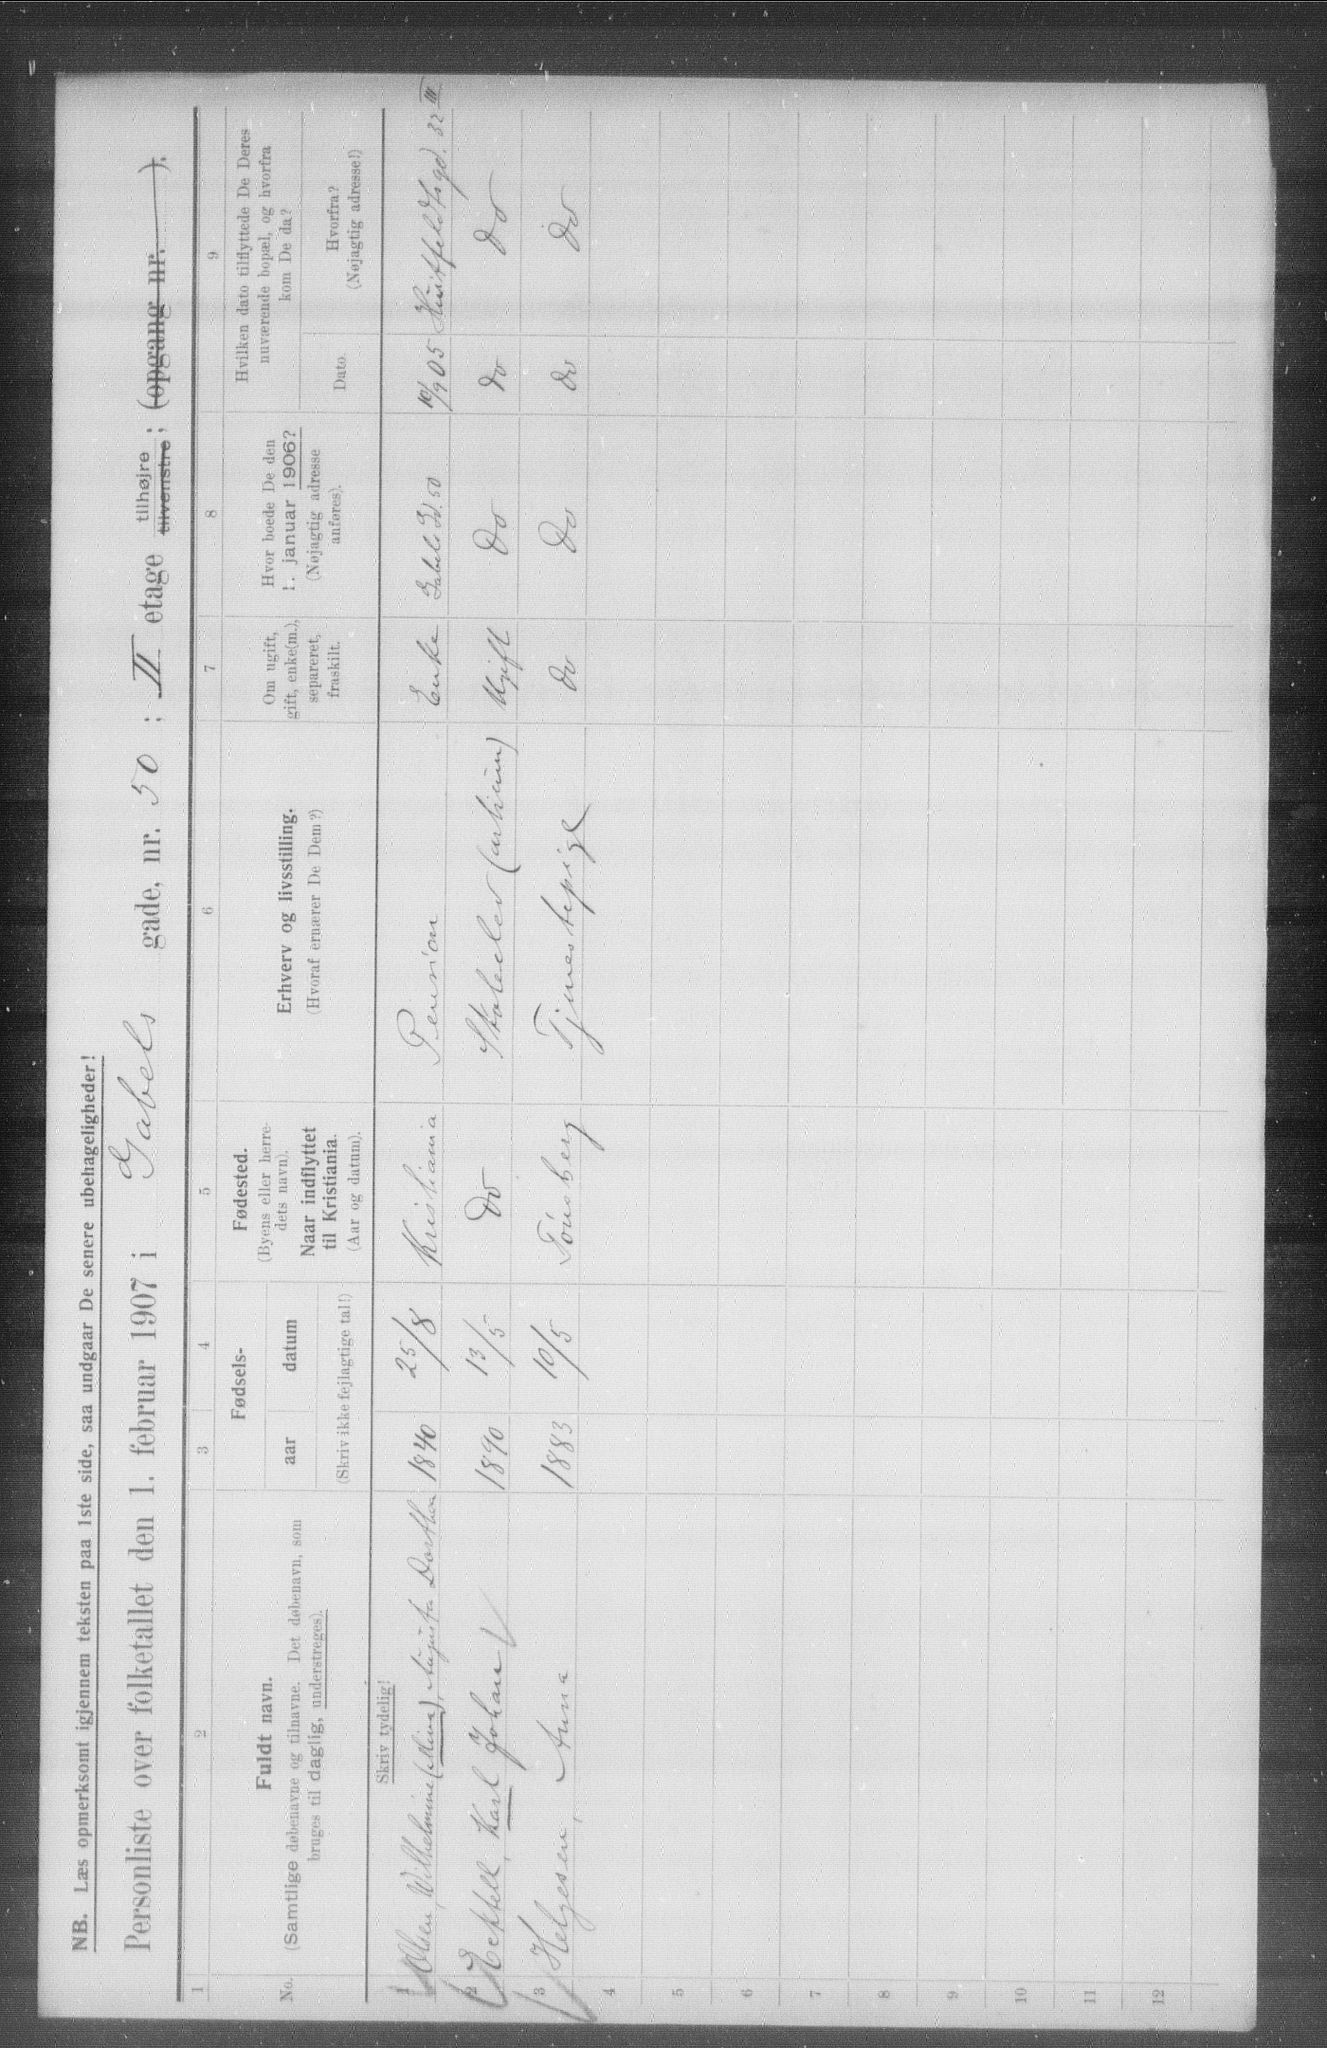 NB. Læs opmerksomt igjennem teksten paa 1ste side, saa undgaar De senere ubehageligheder!
Personliste over folketallet den 1. februar 1907 i Gabels gade, nr. 50 ; II etage tilhøjre tilvenstre ; (opgang nr. ).
1 2 3 4 5 6 7 8 9
No.
Fuldt navn.
(Samtlige døbenavne og tilnavne. Det døbenavn, som
bruges til daglig, understreges).
Fødsels-
aar datum
(Skriv ikke fejlagtige tal!)
Fødested.
(Byens eller herre-
dets navn).
Naar indflyttet
til Kristiania.
(Aar og datum).
Erhverv og livsstilling.
(Hvoraf ernærer De Dem?)
Om ugift,
gift, enke(m.),
separeret,
fraskilt.
Hvor boede De den
1. januar 1906?
(Nøjagtig adresse
anføres).
Hvilken dato tilflyttede De Deres
nuværende bopæl, og hvorfra
kom De da?
Dato.
Hvorfra?
(Nøjagtig adresse!)
Skriv tydelig!
1 Olsen, Wilhelmine (Mina), Augusta Dorthea 1840 25/8 Kristiania Pension Enke Gabels Gd. 50 10/9 05 Huitfeldtsgd. 32 III
2 Karl Johan 1890 13/5 do Skoleelev (artium) Ugift do do do
3 Helgesen, Anna 1883 10/5 Tönsberg Tjenestepige do do do do
4
5
6
7
8
9
10
11
12